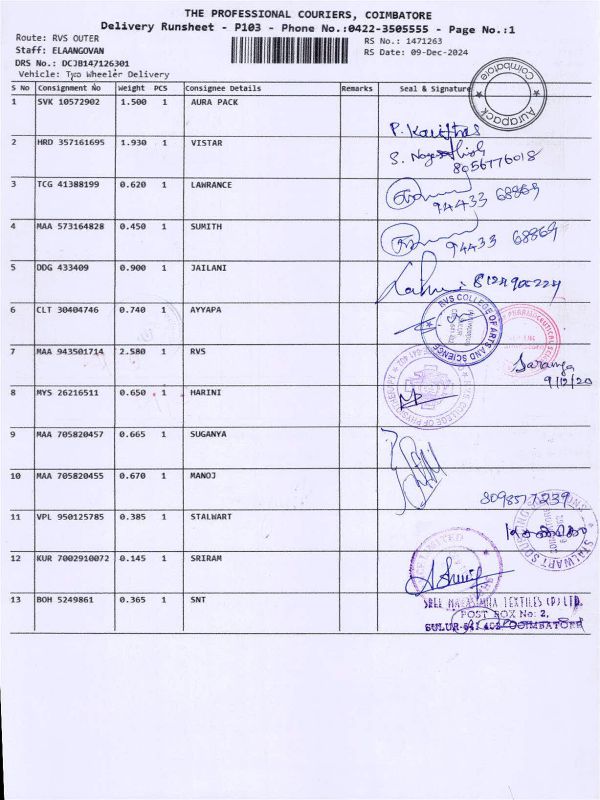 THE PROFESSIONAL COURIERS, COIMBATORE
Delivery Runsheet - P103 - Phone No.:0422-3505555 - Page No.:1
Route: RVS OUTER
RS No.: 1471263
Staff: ELAANGOVAN
RS Date: 09-Dec-2024
DRS No.: DCJB147126301
Vehicle: Two Wheeler Delivery
S No Consignment No Weight PCS Consignee Details Remarks Seal & Signature
Aurapack Coimbatore
1 SVK 10572902 1.500 1 AURA PACK
P. Kavithas
2 HRD 357161695 1.930 1 VISTAR
8056776018
3 TCG 41388199 0.620 1 LAWRANCE
94433 68869
4 MAA 573164828 0.450 1 SUMITH
94433 68869
5 DDG 433409 0.900 1 JAILANI
6 CLT 30404746 0.740 1 AYYAPA
RVS COLLEGE OF ARTS AND SCIENCE
7 MAA 943501714 2.580 1 RVS
Saranya
9/12/20
8 MYS 26216511 0.650 1 HARINI
9 MAA 705820457 0.665 1 SUGANYA
10 MAA 705820455 0.670 1 MANOJ
8098577239
11 VPL 950125785 0.385 1 STALWART
12 KUR 7002910072 0.145 1 SRIRAM
13 BOH 5249861 0.365 1 SNT
TEXTILES (P) LTD.
POST BOX No: 2,
SULUR-641 402 COIMBATORE